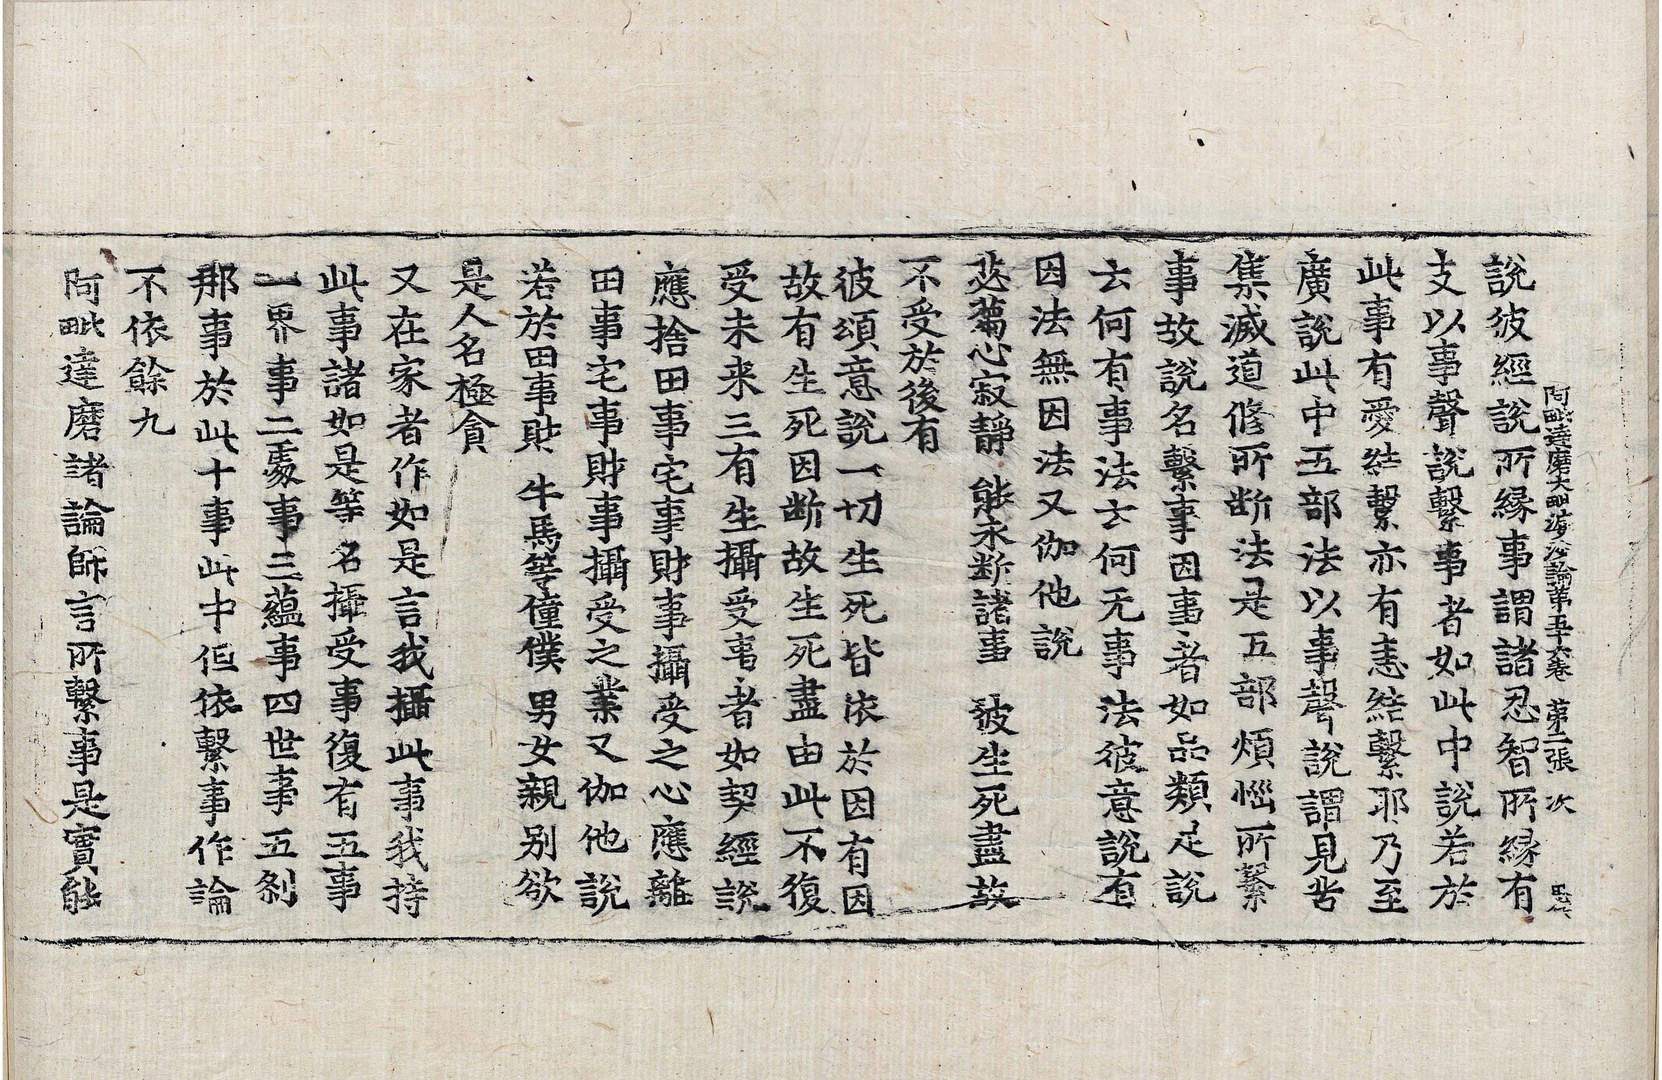 阿毗達磨大毗婆沙論第五十六卷　第二張　次
說彼經說所縁事謂諸忍智所縁有
支以事聲說繫事者如此中說若於
此事有愛結繫亦有恚結繫耶乃至
廣說此中五部法以事聲說謂見苦
集滅道修所断法是五部煩惱所繫
事故說名繫事因事者如品類足說
云何有事法云何无事法彼意說有
因法無因法又伽他說
苾蒭心寂靜　能永断諸事　彼生死盡故
不受於後有
彼頌意說一切生死皆依於因有因
故有生死因断故生死盡由此不復
受未来三有生攝受事者如契經說
應捨田事宅事財事攝受之心應離
田事宅事財事攝受之業又伽他說
若於田事財　牛馬等僮僕　男女親别欲
是人名極貪
又在家者作如是言我攝此事我持
此事諸如是等名攝受事復有五事
一界事二處事三蘊事四世事五刹
那事於此十事此中但依繫事作論
不依餘九
阿毗達磨諸論師言所繫事是實能